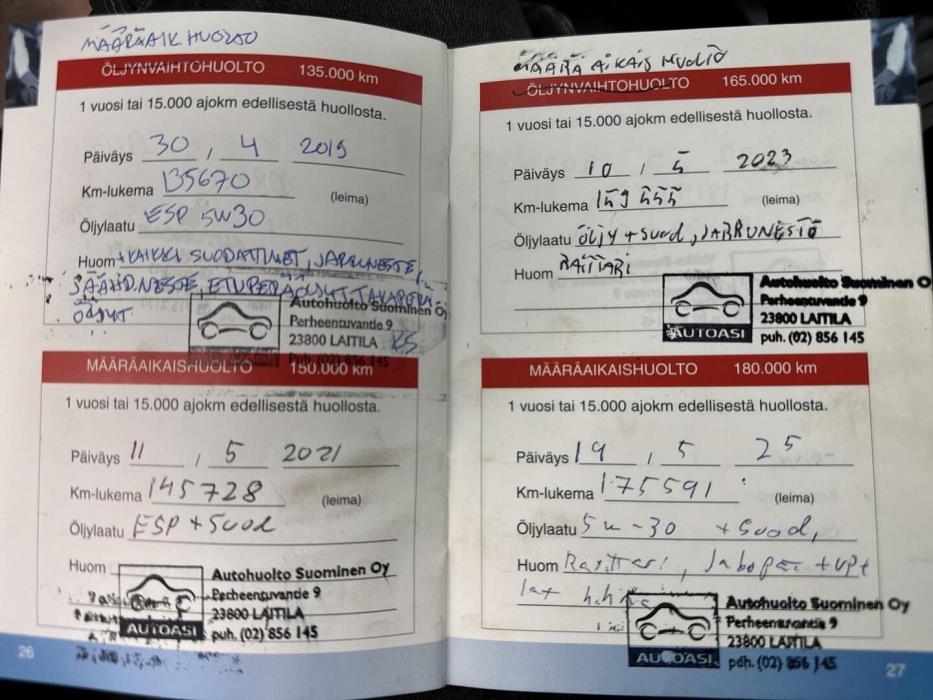 MÄÄRÄAIK. HUOLTO
ÖLJYNVAIHTOHUOLTO 135.000 km
1 vuosi tai 15.000 ajokm edellisestä huollosta.
Päiväys 30 / 4 2019
Km-lukema 135670 (leima)
Öljylaatu ESP 5W30
Huom + KAIKKI SUODATTIMET, JARRUNESTE,
JÄÄHD.NESTE, ETUPERÄÖLJYT, TAKAPERÄ-
ÖLJYT
Autohuolto Suominen Oy
Perheentuvantie 9
23800 LAITILA KS
Puh. (02) 856 145
MÄÄRÄAIKAISHUOLTO 150.000 km
1 vuosi tai 15.000 ajokm edellisestä huollosta.
Päiväys 11 / 5 2021
Km-lukema 145728 (leima)
Öljylaatu ESP + Suod
Huom
AUTOASI
Autohuolto Suominen Oy
Perheentuvantie 9
23800 LAITILA
puh. (02) 856 145
26
MÄÄRÄAIKAIS HUOLTO
ÖLJYNVAIHTOHUOLTO 165.000 km
1 vuosi tai 15.000 ajokm edellisestä huollosta.
Päiväys 10 / 5 2023
Km-lukema 159555 (leima)
Öljylaatu Öljy + suod, JARRUNESTE
Huom RAITTARI
AUTOASI
Autohuolto Suominen O
Perheentuvantie 9
23800 LAITILA
puh. (02) 856 145
MÄÄRÄAIKAISHUOLTO 180.000 km
1 vuosi tai 15.000 ajokm edellisestä huollosta.
Päiväys 19 / 5 25
Km-lukema 175591 (leima)
Öljylaatu 5w-30 + Suod,
Huom
AUTOASI
Autohuolto Suominen Oy
Perheentuvantie 9
23800 LAITILA
puh. (02) 856 145
27